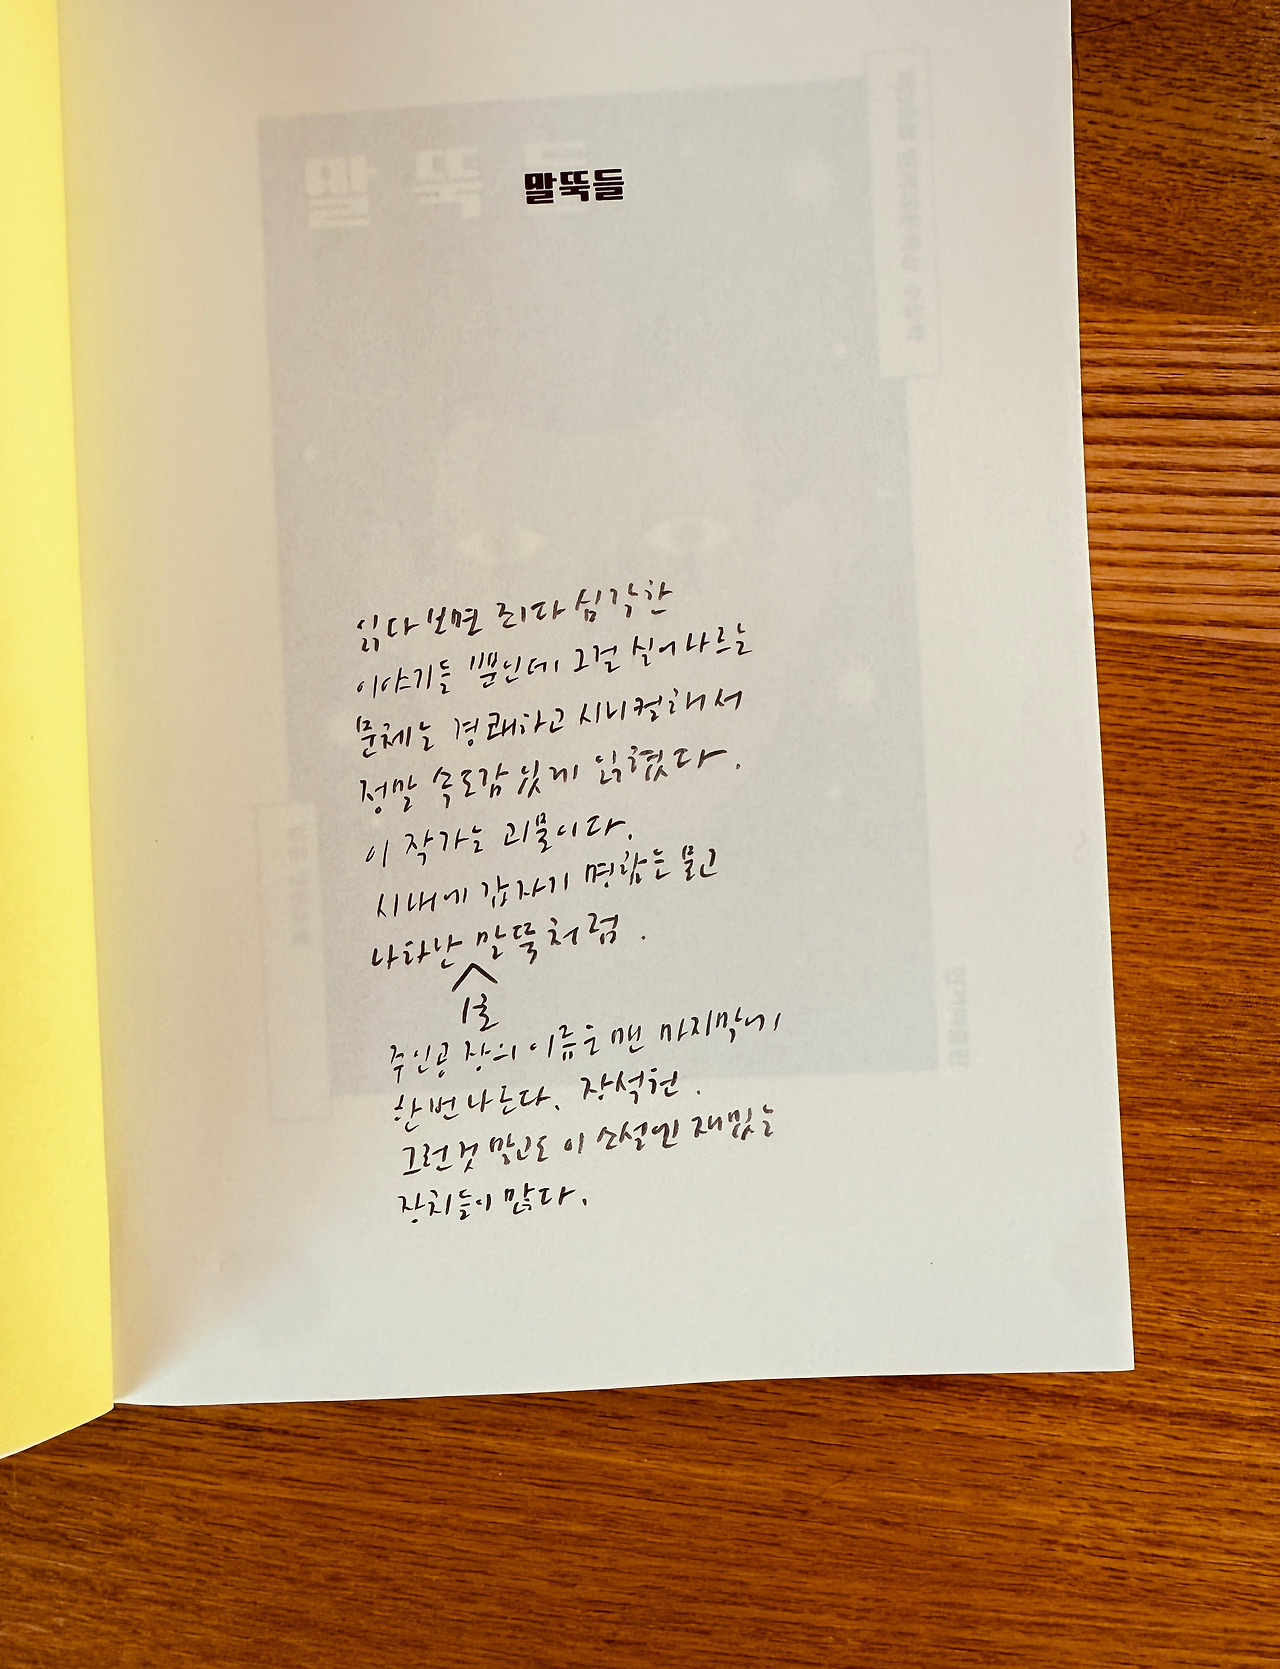 말뚝들
읽다보면 죄다 심각한
이야기들 뿐인데 그걸 실어나르는
문체는 경쾌하고 시니컬해서
정말 속도감 있게 읽혔다.
이 작가는 괴물이다.
시내에 갑자기 명함을 물고
나타난 말뚝처럼.
주인공 장의 이름은 맨 마지막에
한번 나온다. 장석원.
그런것 말고도 이 소설엔 재밌는
장치들이 많다.